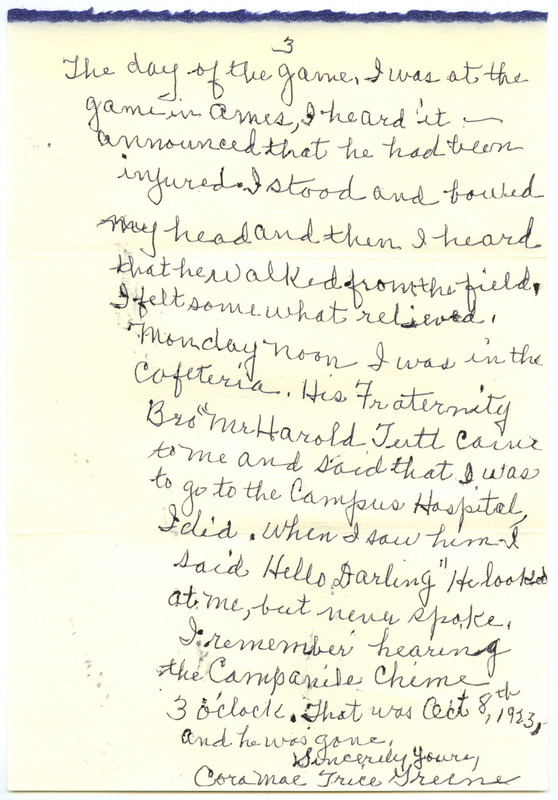 3
The day of the game. I was at the
game in Ames, I heard it —
announced that he had been
injured. I stood and bowed
my head and then I heard
that he walked from the field.
I felt some what relieved.
Monday noon I was in the
Cafeteria. His Fraternity
Bro" Mr Harold Tutt came
to me and said that I was
to go to the Campus Hospital,
I did. When I saw him I
said Hello Darling" He looked
at me, but never spoke.
I remember hearing
the Campanile Chime
3 o'clock. That was Oct 8,th 1923,
and he was gone.
Sincerely yours,
Cora Mae Trice Greene